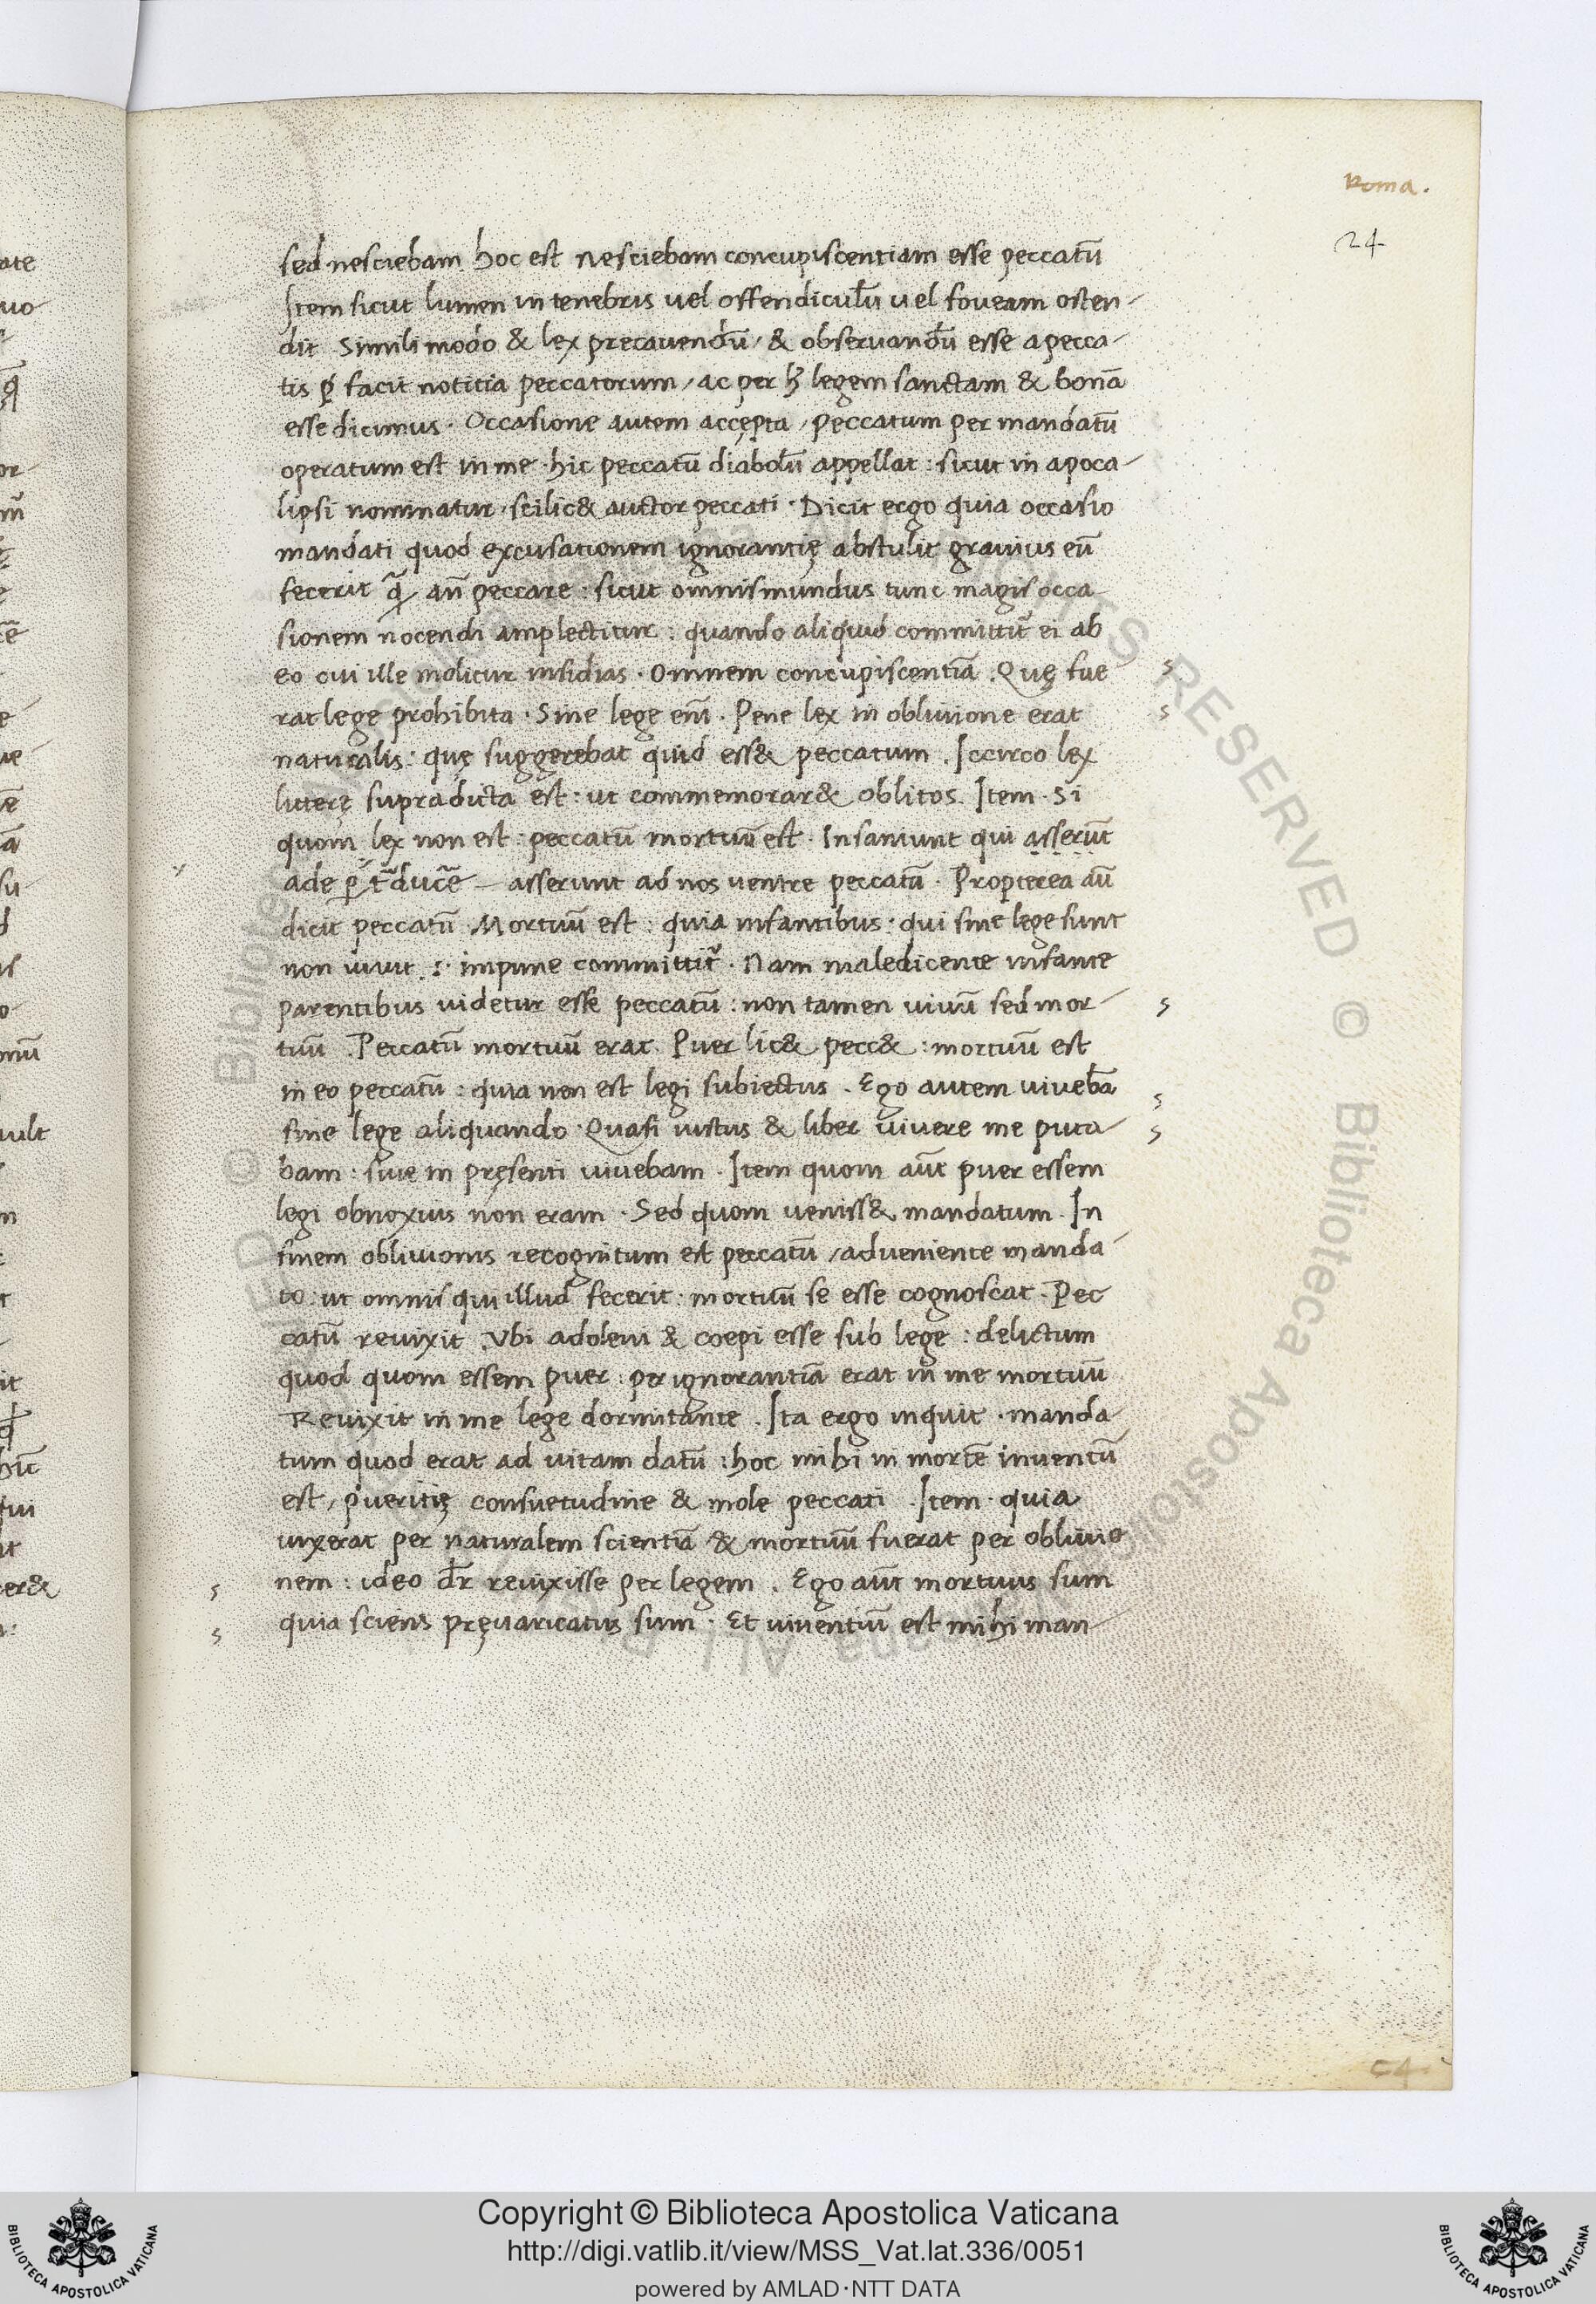 Roma.
24
sed nesciebam hoc est nesciebam concupiscentiam esse peccatū
Item sicut lumen in tenebris uel offendiculū uel foueam osten-
dit simili modo & lex precauendū / & obseruandū esse a pecca-
tis facit noticia peccatorum / ac per legem sanctam & bonā
esse dicimus . Occasione autem accepta / peccatum per mandatū
operatum est in me . hic peccatū diabolū appellat : sicut in apoca-
lipsi nominatur . scilic& auctor peccati . Dicit ergo quia occasio
mandati quod excusationem ignorantię abstulit grauius eū
fecerit q̄ an̄ peccare : sicut omnis mundus tunc magis occa-
sionem nocendi amplectitur : quando aliquid committit̄ ei ab
eo cui ille molitur insidias . Omnem concupiscentiā . Quę fue
rat lege prohibita . Sine lege eni̅ . Pene lex in obliuione erat
naturalis : quę suggerebat quid ess& peccatum . Iccirco lex
litterę supradicta est : ut commemorar& oblitos . Item . Si
quom lex non est : peccatū mortuū est . Insaniunt qui asserūt
ade p t̄ducē — asserunt ad nos uenire peccatū . Propterea aū
dicit peccatū Mortuū est : quia infantibus : qui sine lege sunt
non uiuit . : impune committit̄ . Nam maledicente infante
parentibus uidetur esse peccatū : non tamen uiuū sed mor-
tuū . Peccatū mortuū erat . Puer lic& pecc& : mortuū est
in eo peccatū : quia non est legi subiectus . Ego autem uiuebā
sine lege aliquando . Quasi iustus & liber uiuere me puta-
bam : siue in pręsenti uiuebam . Item quom aūt puer essem
legi obnoxius non eram . Sed quom ueniss& mandatum . In
finem obliuionis recognitum est peccatū / adueniente manda-
to : ut omnis qui illud fecerit : mortuū se esse cognoscat . Pec
catū reuixit . Vbi adoleui & coepi esse sub lege : delictum
quod quom essem puer : per ignorantiā erat in me mortuū
Reuixit in me lege dormitante . Ita ergo inquit . manda-
tum quod erat ad uitam datū : hoc mihi in mortē inuentū
est / pueritię consuetudine & mole peccati . Item . quia
uixerat per naturalem scientiā & mortuū fuerat per obliuio
nem : ideo dr̄ reuixisse per legem . Ego aūt mortuus sum
quia sciens pręuaricatus sum . Et inuentū est mihi man-
Copyright © Biblioteca Apostolica Vaticana
http://digi.vatlib.it/view/MSS_Vat.lat.336/0051
powered by AMLAD·NTT DATA